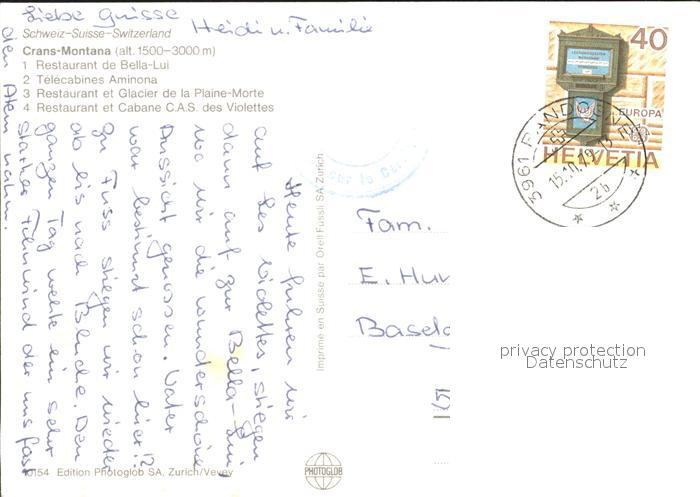 Liebe Grüsse
Heidi u. Familie
Schweiz–Suisse–Switzerland
Crans-Montana (alt. 1500–3000 m)
1 Restaurant de Bella-Lui
2 Télécabines Aminona
3 Restaurant et Glacier de la Plaine-Morte
4 Restaurant et Cabane C.A.S. des Violettes
Heute fuhren wir
auf Les Violettes, stiegen
dann auf zur Bella-Lui,
wo wir die wunderschöne
Aussicht genossen. Vater
war bestimmt schon hier!?
Zu Fuss stiegen wir wieder
ab bis nach Bluche. Den
ganzen Tag wehte ein sehr
starker Föhnwind der uns fast
den Atem nahm.
Imprimé en Suisse par Orell Füssli SA Zürich
40
EUROPA
HELVETIA
3961
15.11.79
2b
Fam.
E. Hu
Basel
privacy protection
Datenschutz
10154 Edition Photoglob SA, Zürich/Vevey
PHOTOGLOB